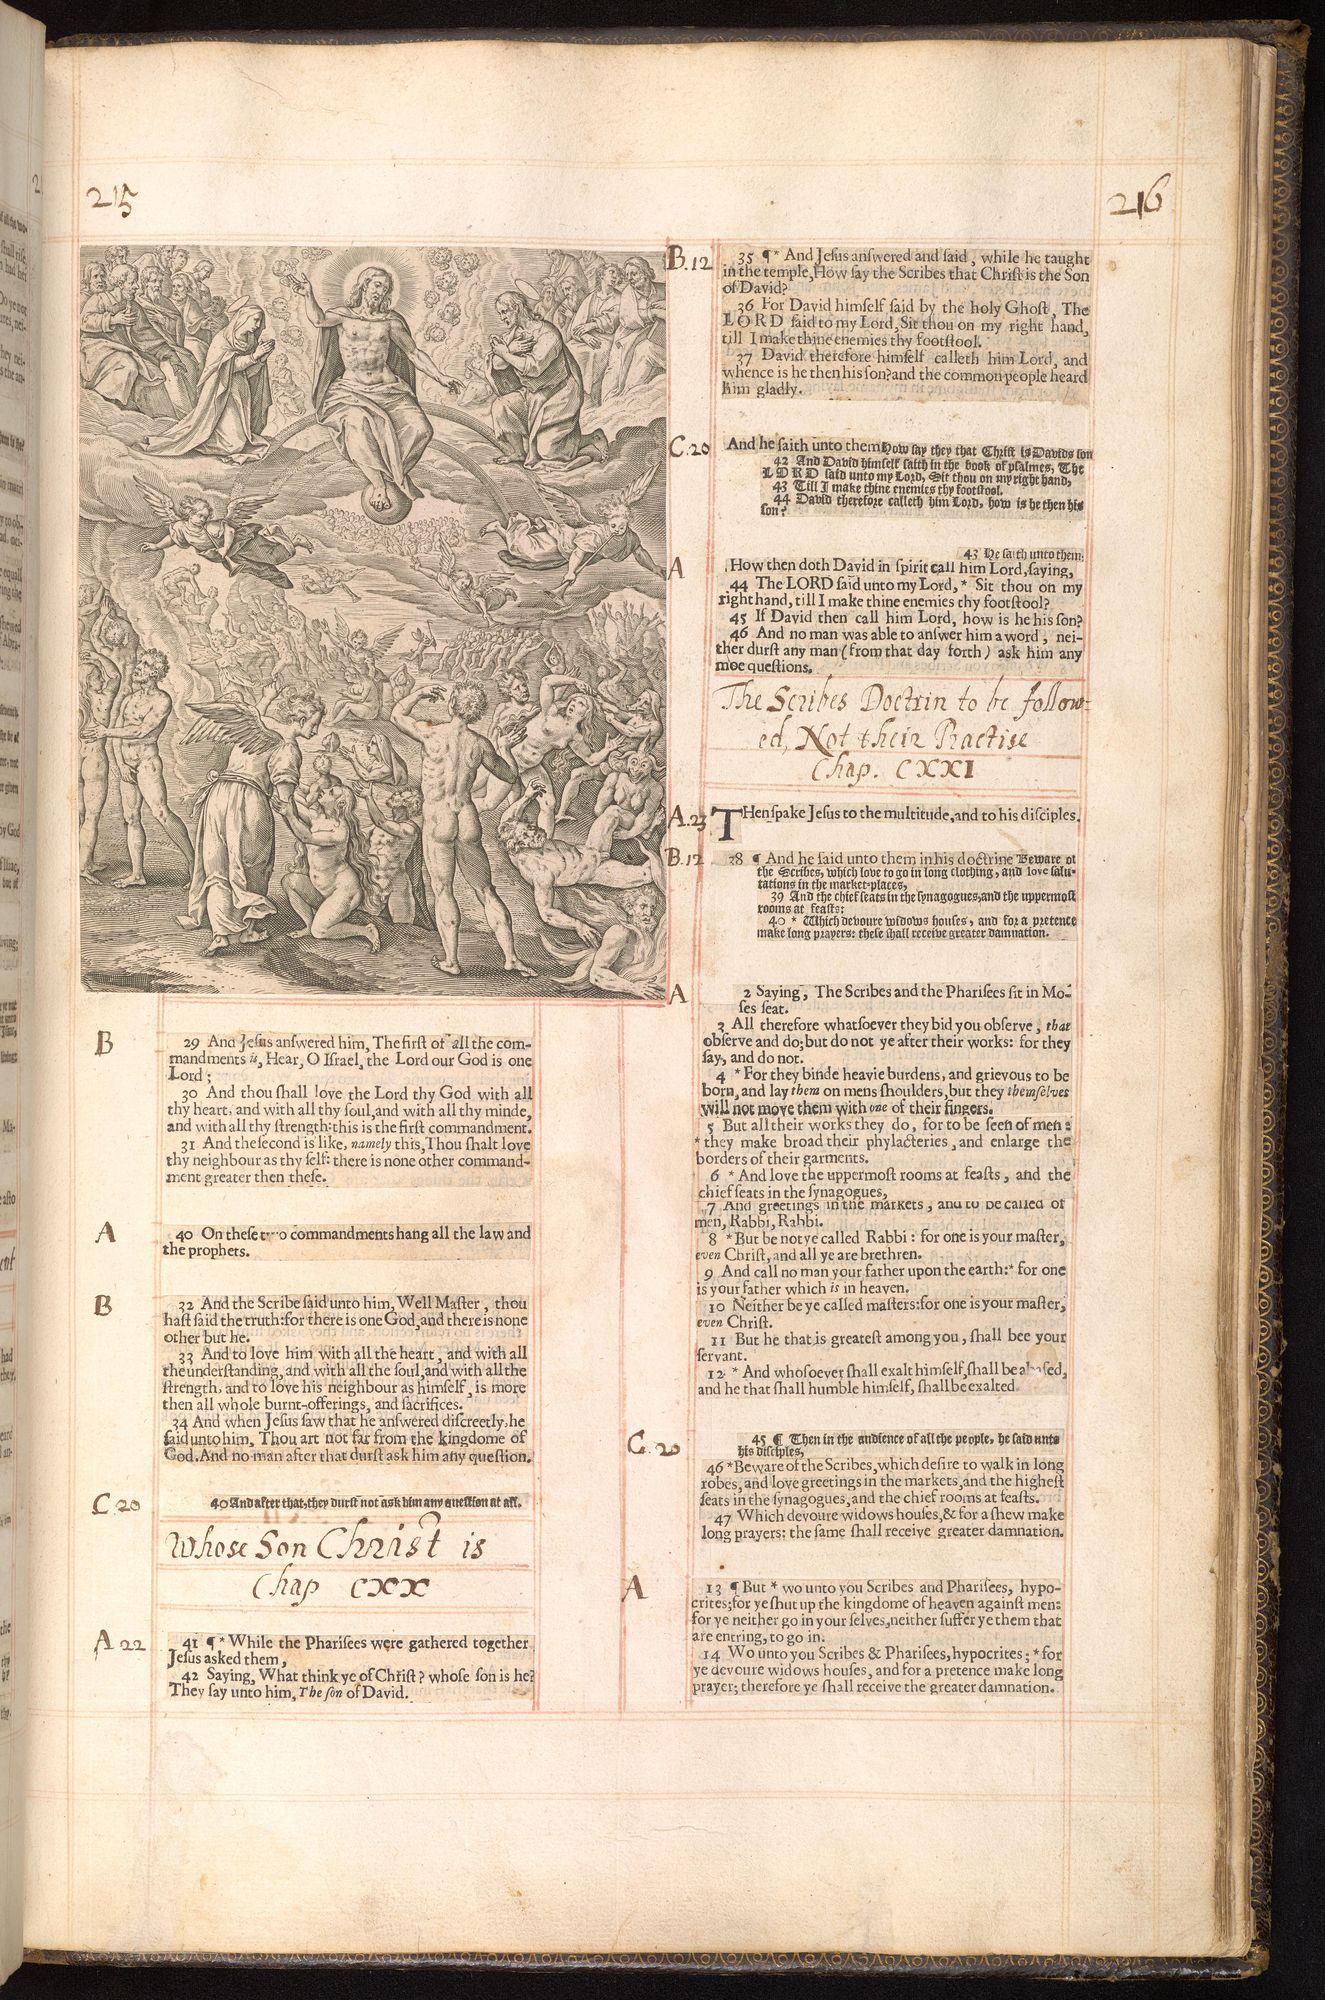 215
B
29 And Jesus answered him, The first of all the com-
mandments is, Hear, O Israel, the Lord our God is one
Lord;
30 And thou shall love the Lord thy God with all
thy heart, and with all thy soul, and with all thy minde,
and with all thy strength: this is the first commandment.
31 And the second is like, namely this, Thou shalt love
thy neighbour as thy self: there is none other command-
ment greater then these.
A
40 On these two commandments hang all the law and
the prophets.
B
32 And the Scribe said unto him, Well Master, thou
hast said the truth: for there is one God, and there is none
other but he.
33 And to love him with all the heart, and with all
the understanding, and with all the soul, and with all the
strength, and to love his neighbour as himself, is more
then all whole burnt-offerings, and sacrifices.
34 And when Jesus saw that he answered discreetly, he
said unto him, Thou art not far from the kingdome of
God. And no man after that durst ask him any question.
C 20
40 And after that, they durst not ask him any question at all.
Whose Son Christ is
Chap CXX
A 22
41 ¶ * While the Pharisees were gathered together
Jesus asked them,
42 Saying, What think ye of Christ? whose son is he?
They say unto him, The son of David.
216
B.12
35 ¶ * And Jesus answered and said, while he taught
in the temple, How say the Scribes that Christ is the Son
of David?
36 For David himself said by the holy Ghost, The
LORD said to my Lord, Sit thou on my right hand,
till I make thine enemies thy footstool.
37 David therefore himself calleth him Lord, and
whence is he then his son? and the common people heard
him gladly.
C.20
And he saith unto them How say they that Christ is Davids son
42 And David himself saith in the book of psalmes, The
LORD said unto my Lord, Sit thou on my right hand,
43 Till I make thine enemies thy footstool.
44 David therefore calleth him Lord, how is he then his
son?
A
43 He saith unto them,
How then doth David in spirit call him Lord, saying,
44 The LORD said unto my Lord, * Sit thou on my
right hand, till I make thine enemies thy footstool?
45 If David then call him Lord, how is he his son?
46 And no man was able to answer him a word, nei-
ther durst any man (from that day forth) ask him any
moe questions.
The Scribes Doctrin to be follow-
ed, Not their Practise
Chap. CXXI
A.23
THen spake Jesus to the multitude, and to his disciples.
B.12
38 ¶ And he said unto them in his doctrine Beware of
the Scribes, which love to go in long clothing, and love salu-
tations in the market-places,
39 And the chief seats in the synagogues, and the uppermost
rooms at feasts:
40 * Which devoure widows houses, and for a pretence
make long prayers: these shall receive greater damnation.
A
2 Saying, The Scribes and the Pharisees sit in Mo-
ses seat.
3 All therefore whatsoever they bid you observe, that
observe and do; but do not ye after their works: for they
say, and do not.
4 * For they binde heavie burdens, and grievous to be
born, and lay them on mens shoulders, but they themselves
will not move them with one of their fingers.
5 But all their works they do, for to be seen of men:
* they make broad their phylacteries, and enlarge the
borders of their garments.
6 * And love the uppermost rooms at feasts, and the
chief seats in the synagogues,
7 And greetings in the markets, and to be called of
men, Rabbi, Rabbi.
8 * But be not ye called Rabbi: for one is your master,
even Christ, and all ye are brethren.
9 And call no man your father upon the earth: * for one
is your father which is in heaven.
10 Neither be ye called masters: for one is your master,
even Christ.
11 But he that is greatest among you, shall bee your
servant.
12 * And whosoever shall exalt himself, shall be abased,
and he that shall humble himself, shall be exalted.
C.20
45 ¶ Then in the audience of all the people, he said unto
his disciples,
46 * Beware of the Scribes, which desire to walk in long
robes, and love greetings in the markets, and the highest
seats in the synagogues, and the chief rooms at feasts.
47 Which devoure widows houses, & for a shew make
long prayers: the same shall receive greater damnation.
A
13 ¶ But * wo unto you Scribes and Pharisees, hypo-
crites; for ye shut up the kingdome of heaven against men:
for ye neither go in your selves, neither suffer ye them that
are entring, to go in.
14 Wo unto you Scribes & Pharisees, hypocrites; * for
ye devoure widows houses, and for a pretence make long
prayer; therefore ye shall receive the greater damnation.